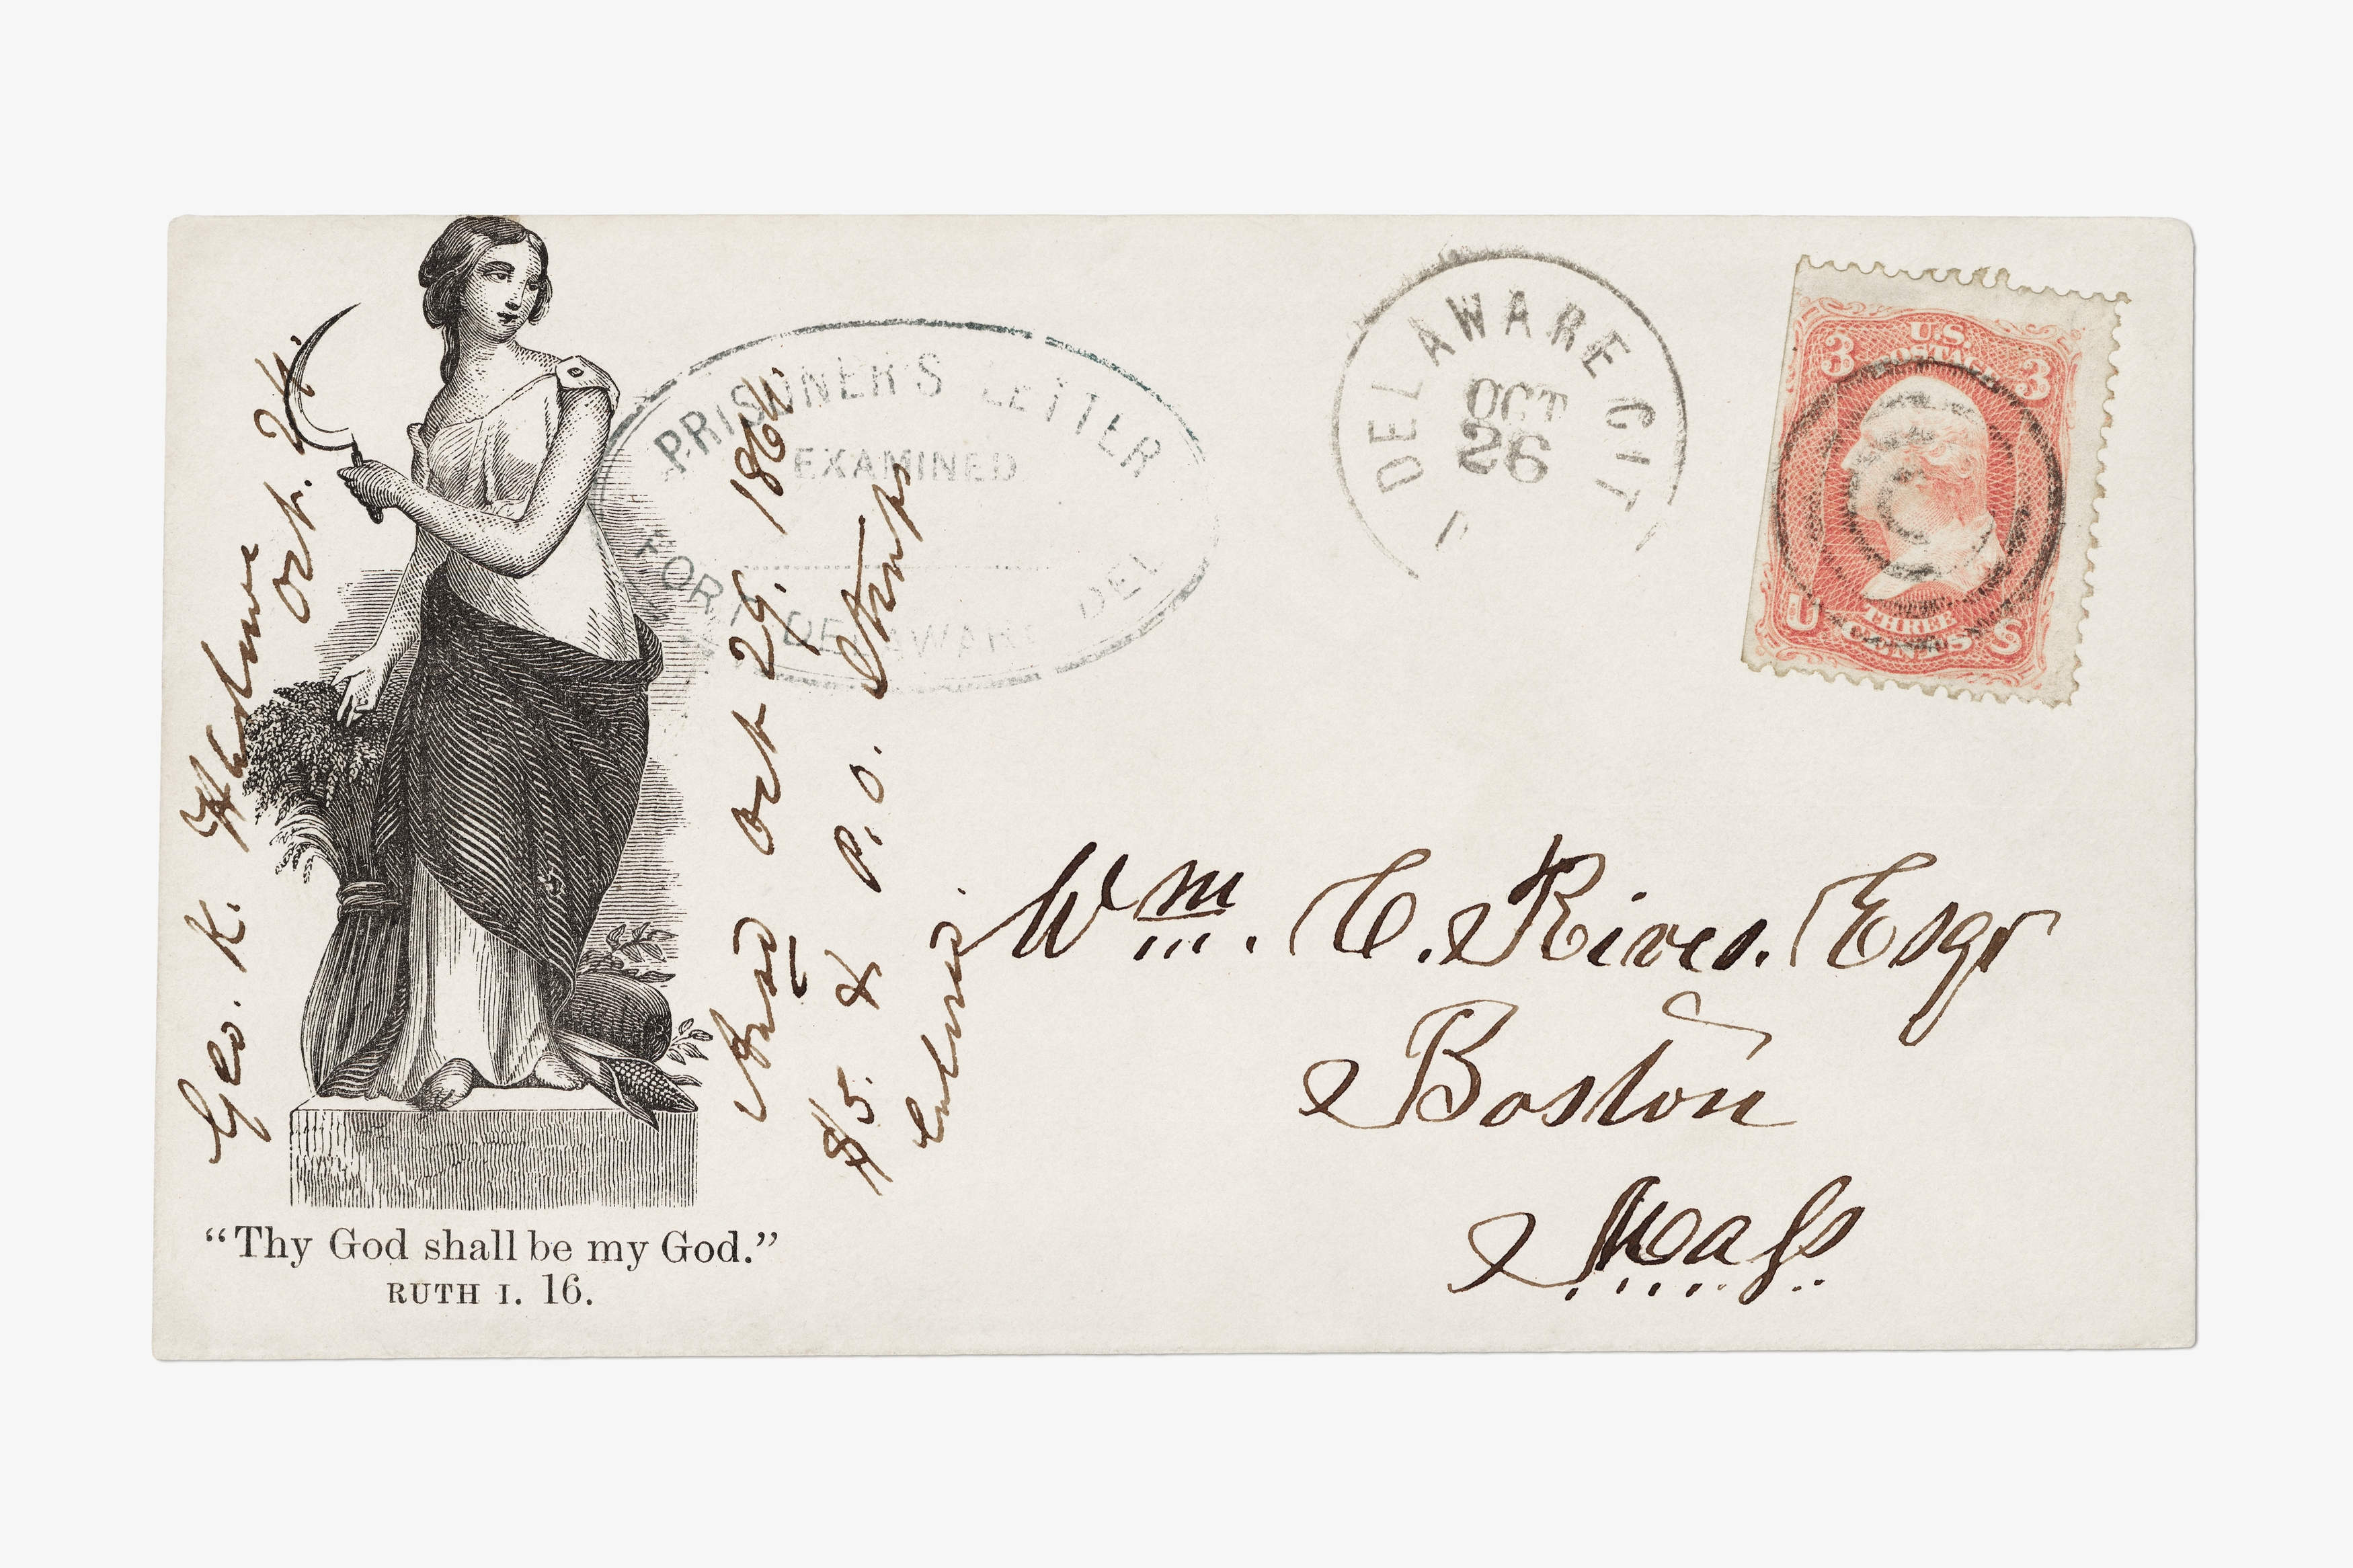 Geo. K.
Oct. 24.
Oct 29. 1864
$5. & P.O. Stamps
PRISONER'S LETTER
EXAMINED
FORT DELAWARE DEL
DELAWARE CIT
OCT
26
U.S.
POSTAGE
3 3
U S
THREE
CENTS
Wm. C. Rives. Esqr
Boston
Mass
“Thy God shall be my God.”
RUTH I. 16.